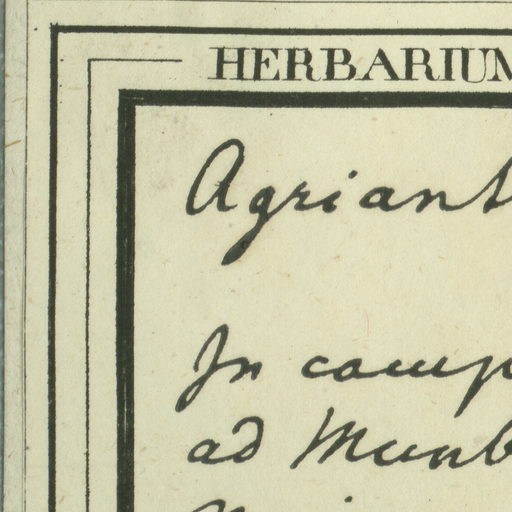 HERBARIUM
Agriant
In camp
ad Munb